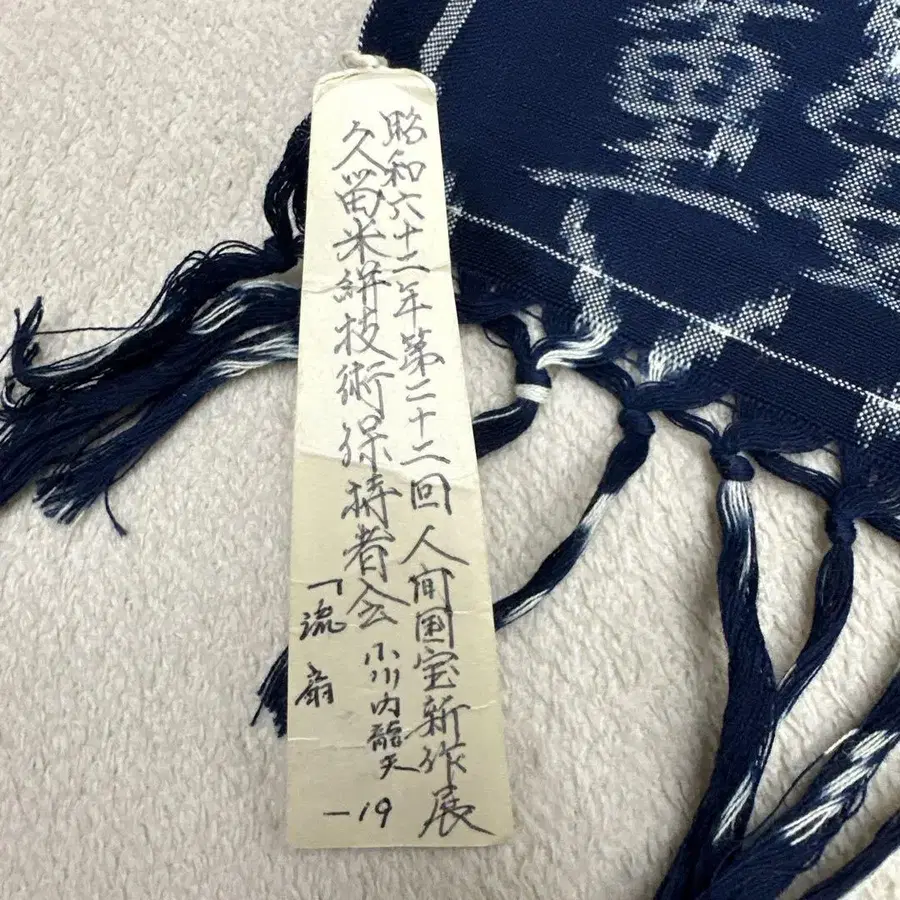 昭和六十二年第二十二回人間国宝新作展
久留米絣技術保持者会 小川内龍夫
「流扇
-19